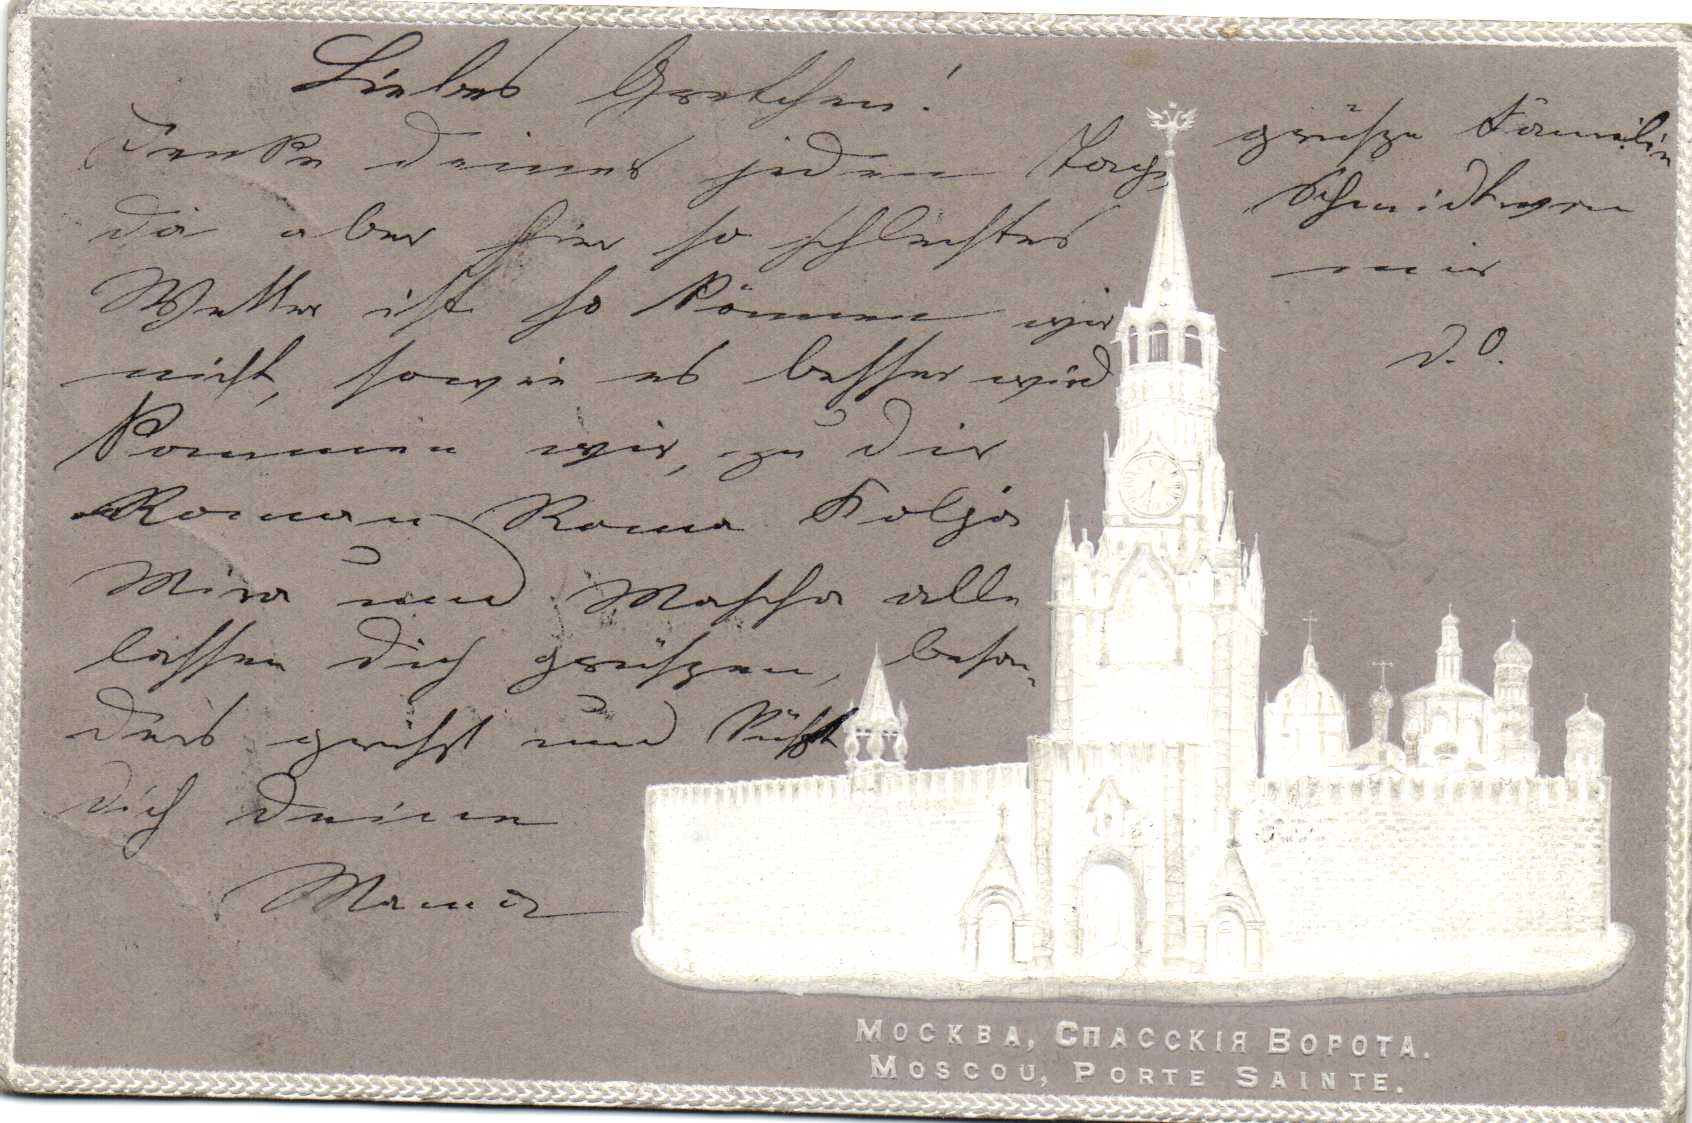 Liebes Gretchen!
Denke deiner jeden Tag,
da aber hier so schlechtes
Wetter ist so können wir
nicht, sowie es besser wird
kommen wir, zu dir
Roman Roma Kolja
Mira und Mascha alle
lassen dich grüszen, beson-
ders grüszt und küszt
dich deine
Mama
grüsze Familie
Schmidt von
mir
d. O.
МОСКВА, СПАССКІЯ ВОРОТА.
MOSCOU, PORTE SAINTE.